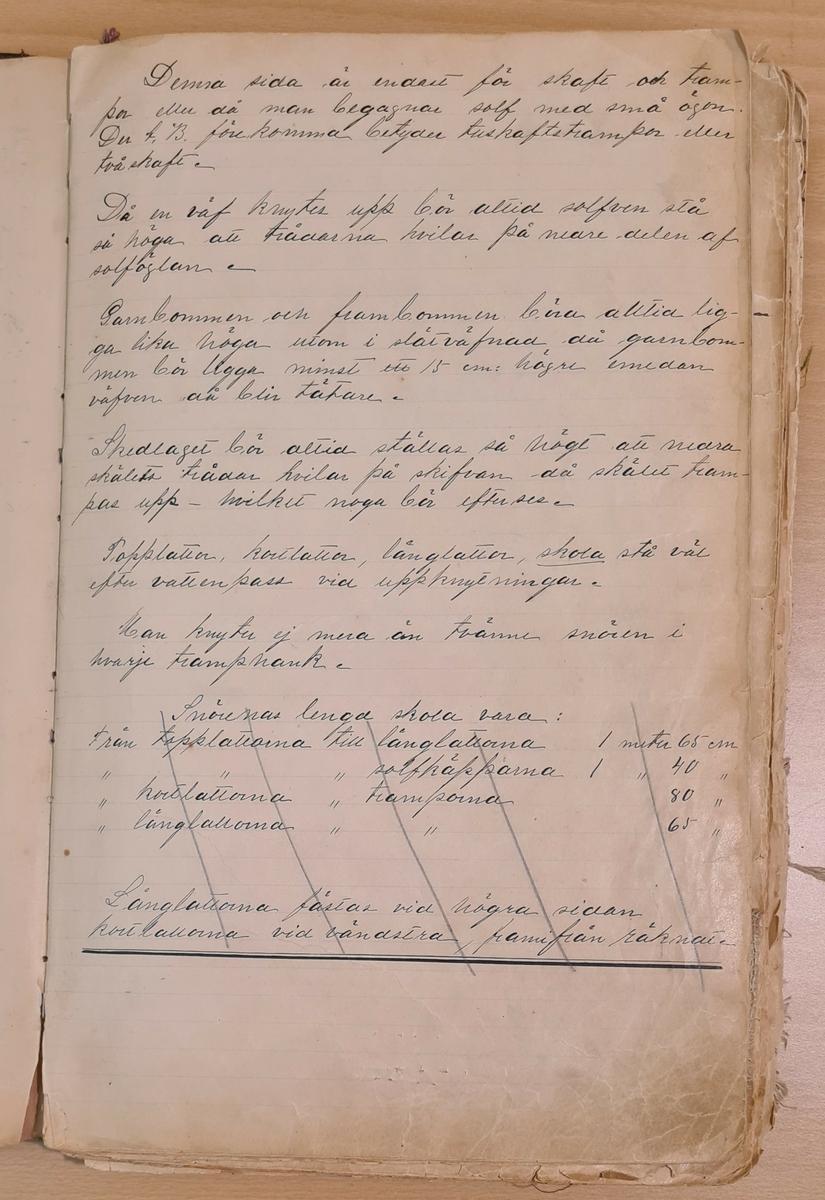 Denna sida är endast för skaft och tram-
por eller då man begagnar solf med små ögon.
Der t. B. förekomma betyder tuskaftstrampor eller
tvåskaft.
Då en väf knytes upp bör alltid solfven stå
så höga att trådarna hvilar på nedre delen af
solföglan
Garnbommen och frambommen böra alltid lig-
ga lika höga utom i slätväfnad då garnbom-
men bör ligga minst ett 15 cm: högre emedan
väfven då blir tätare.
Skedlaget bör alltid ställas så högt att nedra
skälets trådar hvilar på skifvan då skälet tram-
pas upp – hvilket noga bör efterses.
Topplattor, kortlattor, långlattor, skola stå väl
efter vattenpass vid uppknytningar.
Man knyter ej mera än tvänne snören i
hvarje tramphank.
Snörenas lengd skola vara:
Från topplattorna till långlattorna 1 meter 65 cm
" " " solfkäpparna 1 " 40 "
" kortlattorna " tramporna 80 "
" långlattorna " " 65 "
Långlattorna fästas vid högra sidan
kortlattorna vid vändstra, framifrån räknat.